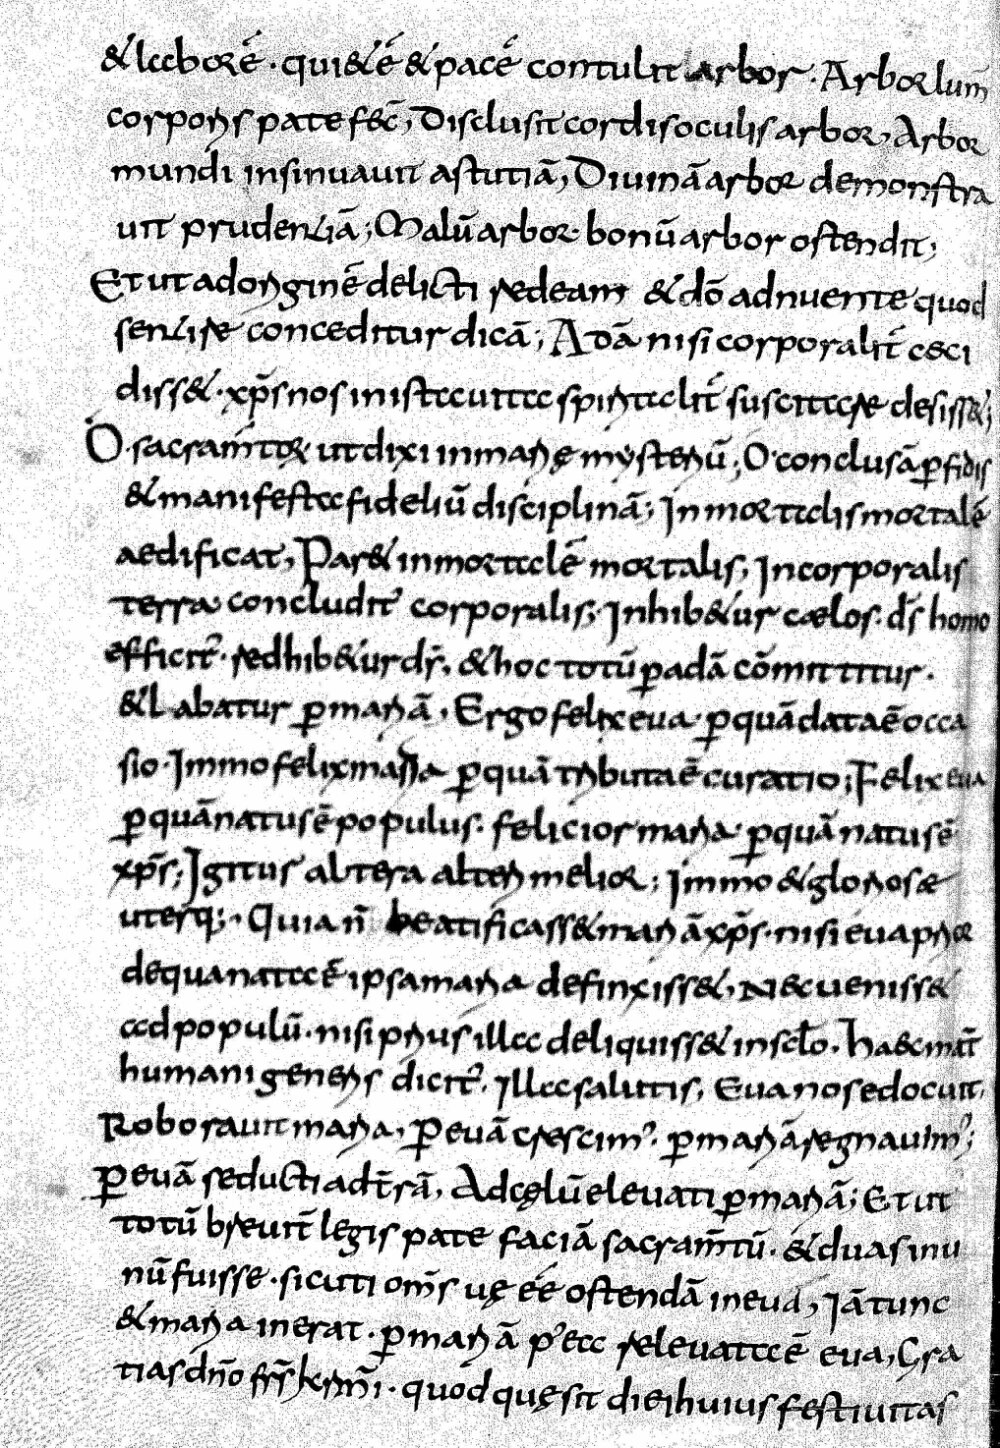 & laborē · qui & ē & pacē contulit arbor · Arbor lum̄
corporis patefec̄, Disclusit cordis oculis arbor, Arbor
mundi insinuauit astutiā, Diuinā arbor demonstra
uit prudentiā; Malū arbor · bonū arbor ostendit;
Et ut ad originē delicti redeam & dō adnuente quod
sentire conceditur dicā; Adā nisi corporalit̄ ceci
diss& · xp̄s nos in ista uita spiritalit̄ suscitare desiss&;
O · sacram̄tor · ut dixi in marię mysteriū; O conclusā ꝑfidis
& manifesta fideliū disciplinā; Inmortalis mortalē
aedificat, Par& inmortalē mortalis, Incorporalis
terra concludit᷒ corporalis; Inhib&ur cælos · d̄s homo
efficit᷒ · redhib&ur d̄s, & hoc totū ꝑ adā cōmittitur ·
& labatur ꝑ mariā, Ergo felix eua ꝑ quā data ē occa
sio · Immo felix maria ꝑ quā tributa ē curatio; Felix eua
ꝑ quā natus ē populus · felicior maria ꝑ quā natus ē
xp̄s; Igitur altera alteri melior; Immo & gloriosæ
uterq; · Quia n̄ beatificass& mariā xp̄s · nisi eua prior
de qua nata ē ipsa maria definxiss&, Nec uenisset
ad populū · nisi prius illa deliquiss& in sclo · haec mat̄
humani generis dicit᷒ · Illa salutis, Eua nos edocuit,
Roborauit maria, ꝑ euā crescim᷒ · ꝑ mariā regnauim᷒;
ꝑ euā seducti ad t̄rā, Ad cęlū eleuati ꝑ mariā; Et ut
totū breuit̄ legis patefaciā sacram̄tū · & duas in u
nū fuisse · sicuti om̄s uę eē ostendā in eua, Iā tunc
& maria inerat · ꝑ mariā p᷒ea releuata ē eua, Gra
tias dn̄o fr̄s kr̄mi · quod quę sit diei huius festiuitas